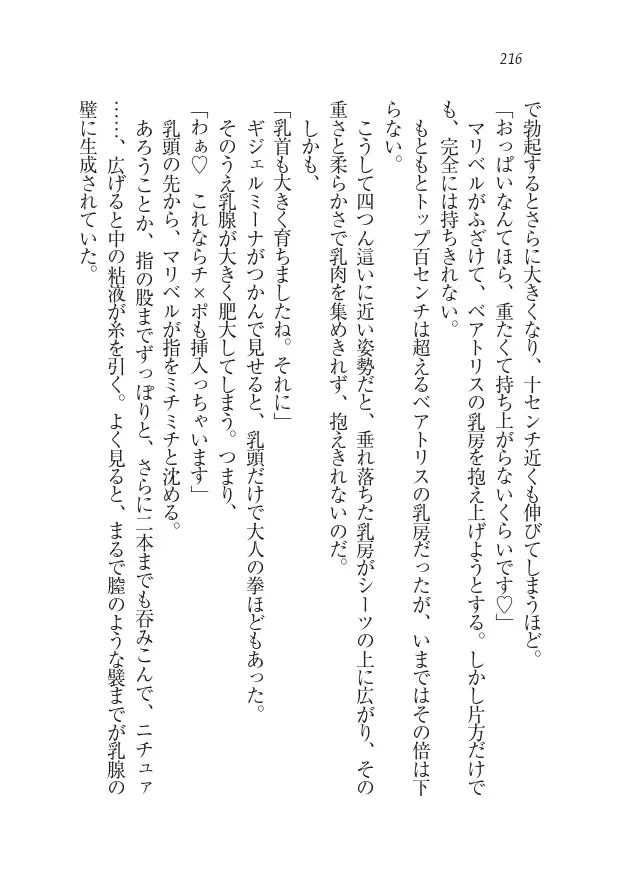 216
で勃起するとさらに大きくなり、十センチ近くも伸びてしまうほど。
「おっぱいなんてほら、重たくて持ち上がらないくらいです♡」
マリベルがふざけて、ベアトリスの乳房を抱え上げようとする。しかし片方だけで
も、完全には持ちきれない。
もともとトップ百センチは超えるベアトリスの乳房だったが、いまではその倍は下
らない。
こうして四つん這いに近い姿勢だと、垂れ落ちた乳房がシーツの上に広がり、その
重さと柔らかさで乳肉を集めきれず、抱えきれないのだ。
しかも、
「乳首も大きく育ちましたね。それに」
ギジェルミーナがつかんで見せると、乳頭だけで大人の拳ほどもあった。
そのうえ乳腺が大きく肥大してしまう。つまり、
「わぁ♡　これならチ×ポも挿入っちゃいます」
乳頭の先から、マリベルが指をミチミチと沈める。
あろうことか、指の股までずっぽりと、さらに二本までも呑みこんで、ニチュァ
……、広げると中の粘液が糸を引く。よく見ると、まるで膣のような襞までが乳腺の
壁に生成されていた。